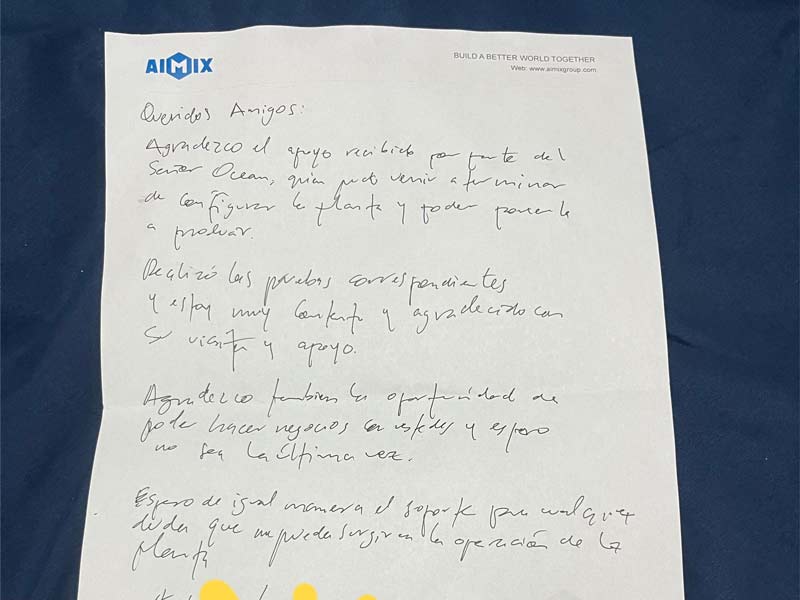 AIMIX
BUILD A BETTER WORLD TOGETHER
Web: www.aimixgroup.com
Queridos Amigos:
Agradezco el apoyo recibido por parte del
Señor Ocean, quien pudo venir a terminar
de configurar la planta y poder ponerla
a probar.
Realizó las pruebas correspondientes
y estoy muy contento y agradecido con
su visita y apoyo.
Agradezco tambien la oportunidad de
poder hacer negocios con ustedes y espero
no sea la última vez.
Espero de igual manera el soporte por cualquier
duda que me pueda surgir en la operación de la
planta